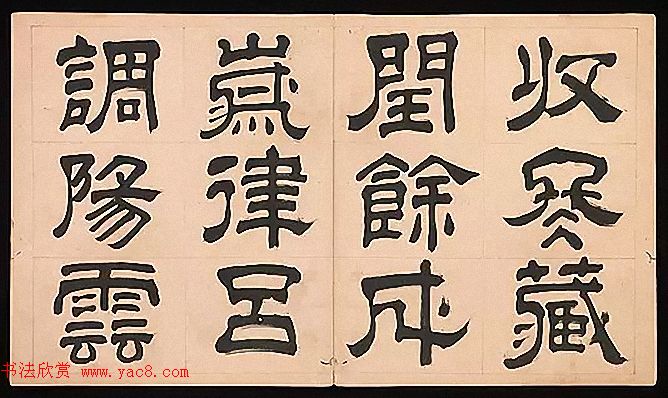 収冬藏
閏餘成
歲律呂
調陽雲
书法欣赏 www.yac8.com